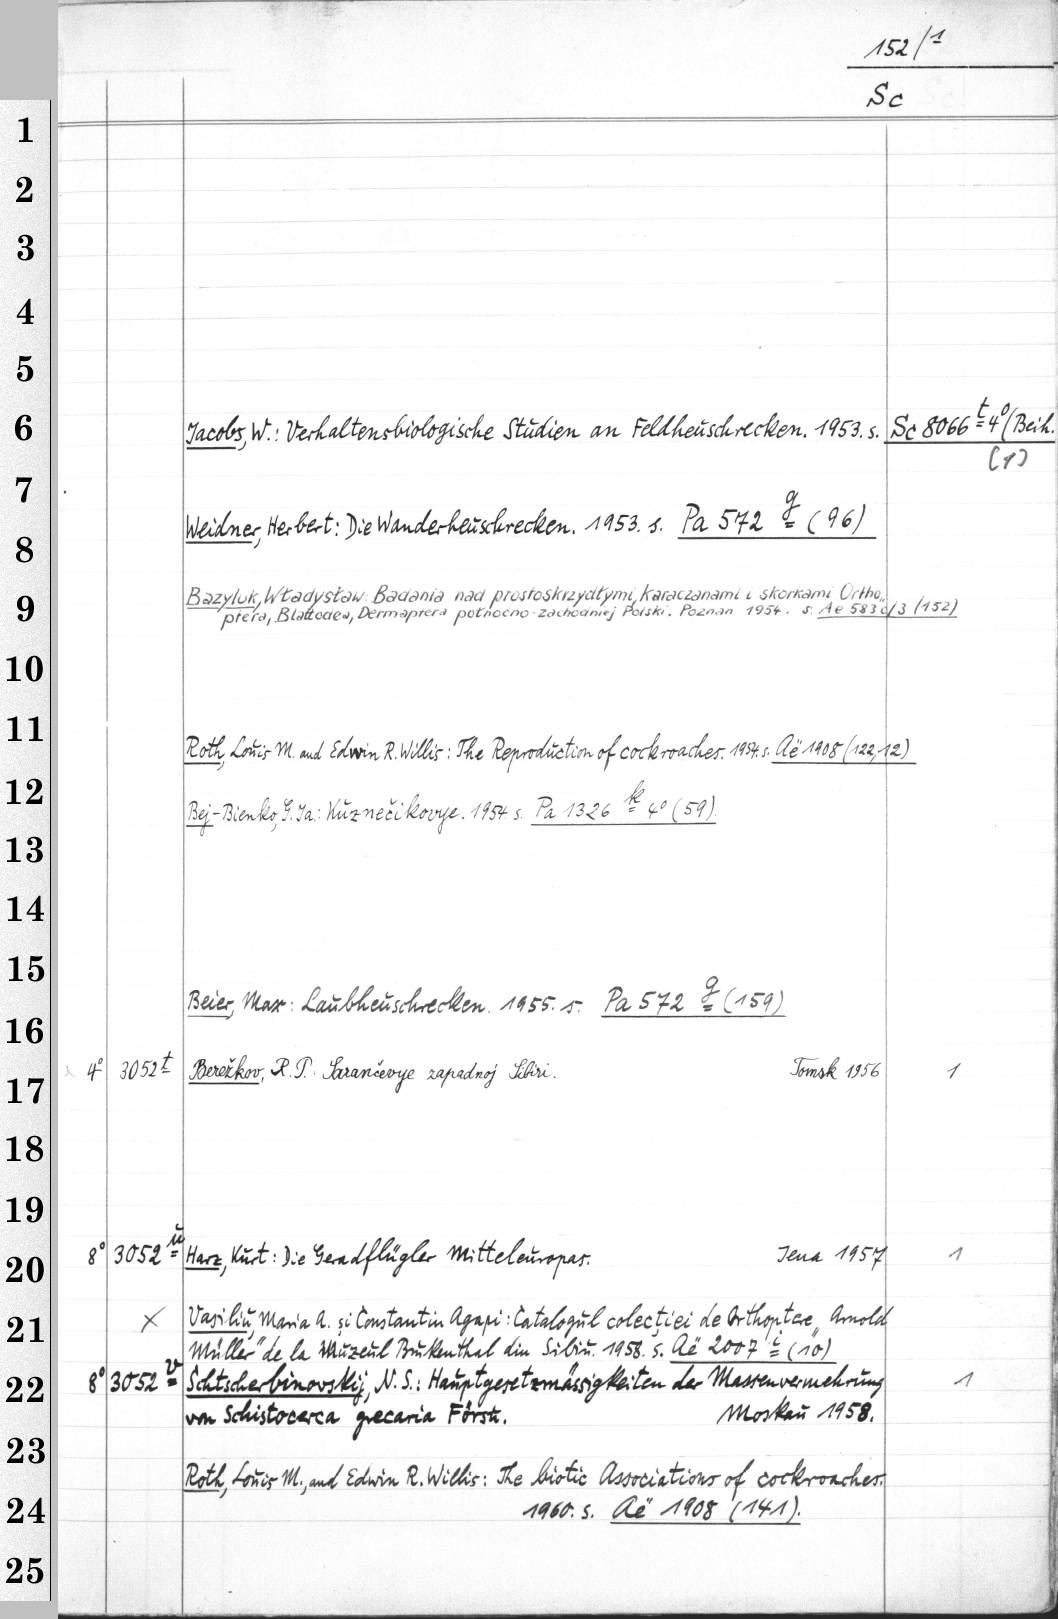 152/1
Sc
1
2
3
4
5
6 Jacobs, W.: Verhaltensbiologische Studien an Feldheuschrecken. 1953. s. Sc 8066 t 4° (Beih.
(1)
7
8 Weidner, Herbert: Die Wanderheuschrecken. 1953. s. Pa 572 g (96)
9 Bazyluk, Władysław: Badania nad prostoskrzydłymi, karaczanami i skorkami Ortho„
ptera, Blattodea, Dermaptera północno-zachodniej Polski. Poznań 1954. s. Ae 583 c/3 (152)
10
11 Roth, Louis M. and Edwin R. Willis: The Reproduction of cockroaches. 1954. s. Aë 1908 (122,12)
12 Bej-Bienko, G. Ja.: Kuznečikovye. 1954 s. Pa 1326 k 4° (59).
13
14
15
16 Beier, Max: Laubheuschrecken. 1955. s. Pa 572 g (159)
17 4° 3052 t Berežkov, R. P. Sarančevye zapadnoj Sibiri. Tomsk 1956 1
18
19
20 8° 3052 u Harz, Kurt: Die Geradflügler Mitteleuropas. Jena 1957 1
21 × Vasiliu, Maria A. și Constantin Agapi: Catalogul colecției de Orthoptere „Arnold
Müller" de la Muzeul Brukenthal din Sibiu. 1958. s. Aë 2007 i (10)
22 8° 3052 v Schtscherbinovskij, N. S.: Hauptgesetzmässigkeiten der Massenvermehrung 1
von Schistocerca grecaria Försk. Moskau 1958.
23
24 Roth, Louis M., and Edwin R. Willis: The biotic Associations of cockroaches.
1960. s. Aë 1908 (141).
25